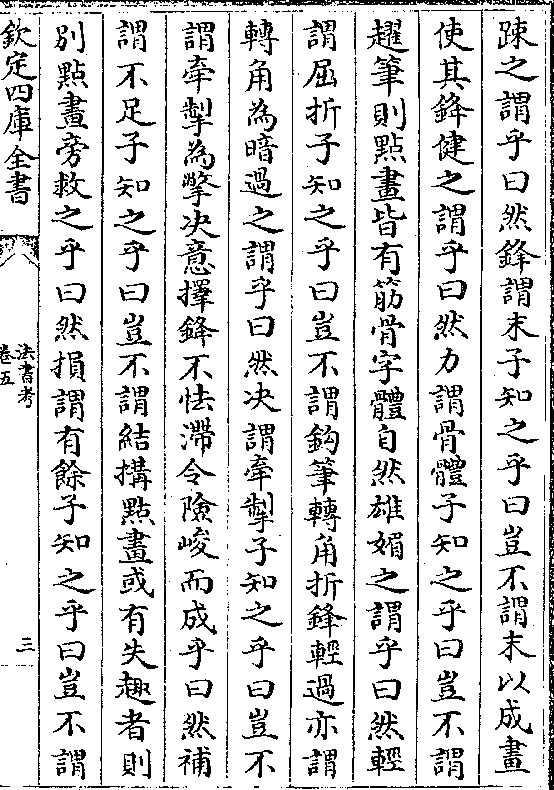 踈之謂乎曰然鋒謂末子知之乎曰豈不謂末以成畫
使其鋒健之謂乎曰然力謂骨體子知之乎曰豈不謂
趯筆則點畫皆有筋骨字體自然雄媚之謂乎曰然輕
謂屈折子知之乎曰豈不謂鈎筆轉角折鋒輕過亦謂
轉角為暗過之謂乎曰然决謂牽掣子知之乎曰豈不
謂牽掣為擎决意擇鋒不怯滯令險峻而成乎曰然補
謂不足子知之乎曰豈不謂結搆點畫或有失趣者則
別點畫旁救之乎曰然損謂有餘子知之乎曰豈不謂
欽定四庫全書
法書考
卷五
三